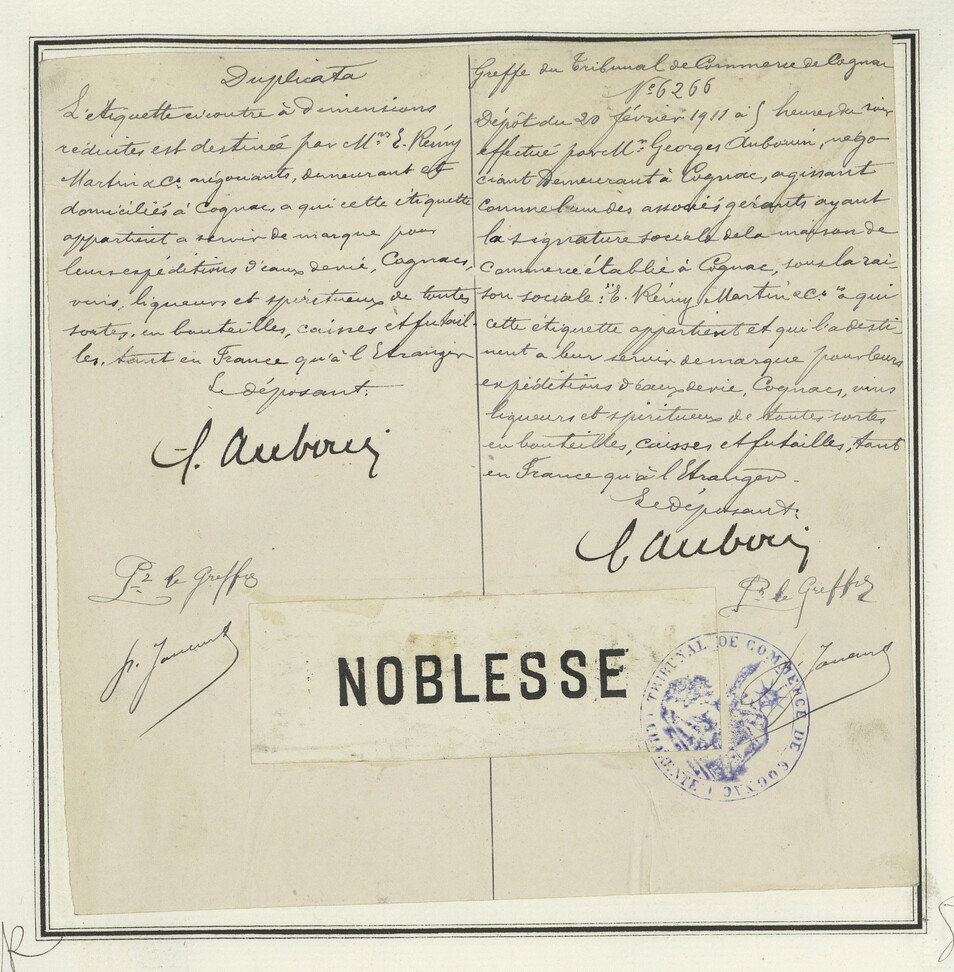 Duplicata
L'étiquette ci contre à dimensions
réduites est destinée par Mrs E. Rémy
Martin & Co négociants, demeurant et
domiciliés à Cognac, a qui cette étiquette
appartient a servir de marque pour
leurs expéditions d'eaux de vie, Cognacs,
vins, liqueurs et spiritueux de toutes
sortes, en bouteilles, caisses et futail-
les, tant en France qu'à l'Etranger
Le déposant.
Auboin
Pr le Greffier
NOBLESSE
Greffe du Tribunal de Commerce de Cognac
No 6266
Dépôt du 20 février 1911 à 5 heures du soir
effectué par Mr Georges Auboin, négo
ciant demeurant à Cognac, agissant
comme l'un des associés gérants ayant
la signature sociale de la maison de
commerce établie à Cognac, sous la rai-
son sociale: "E. Rémy Martin & Co" a qui
cette étiquette appartient et qui l'a desti-
nent a leur servir de marque pour leurs
expéditions d'eaux de vie, Cognacs, vins
liqueurs et spiritueux de toutes sortes
en bouteilles, caisses et futailles, tant
en France qu'à l'Etranger.
Le déposant.
Auboin
Pr le Greffier
TRIBUNAL DE COMMERCE DE COGNAC
(CHARENTE)